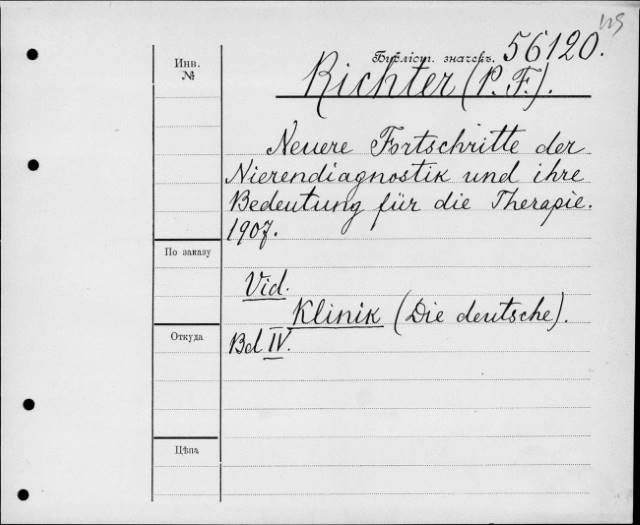 Инв. №
Бубліот. значекъ. 56120.
Richter (P. F.).
Neuere Fortschritte der
Nierendiagnostik und ihre
Bedeutung für die Therapie.
1907.
По заказу
Vid.
Klinik (Die deutsche).
Откуда
Bd IV.
Цѣна